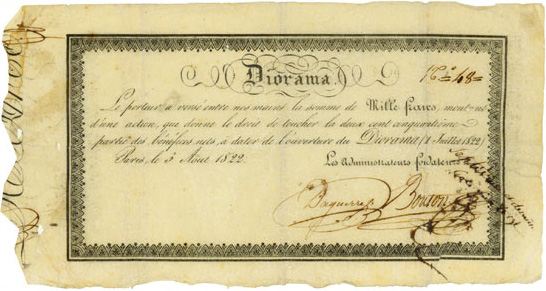 Diorama.
N.º 48
Le porteur a versé entre nos mains la somme de Mille francs, montant
d'une action, que donne le droit de toucher la deux cent cinquantième
partie des bénéfices nets, à dater de l'ouverture du Diorama (1 Juillet 1822)
Paris, le 5 Aout 1822.
Les Administrateurs fondateurs
Daguerre Bouton